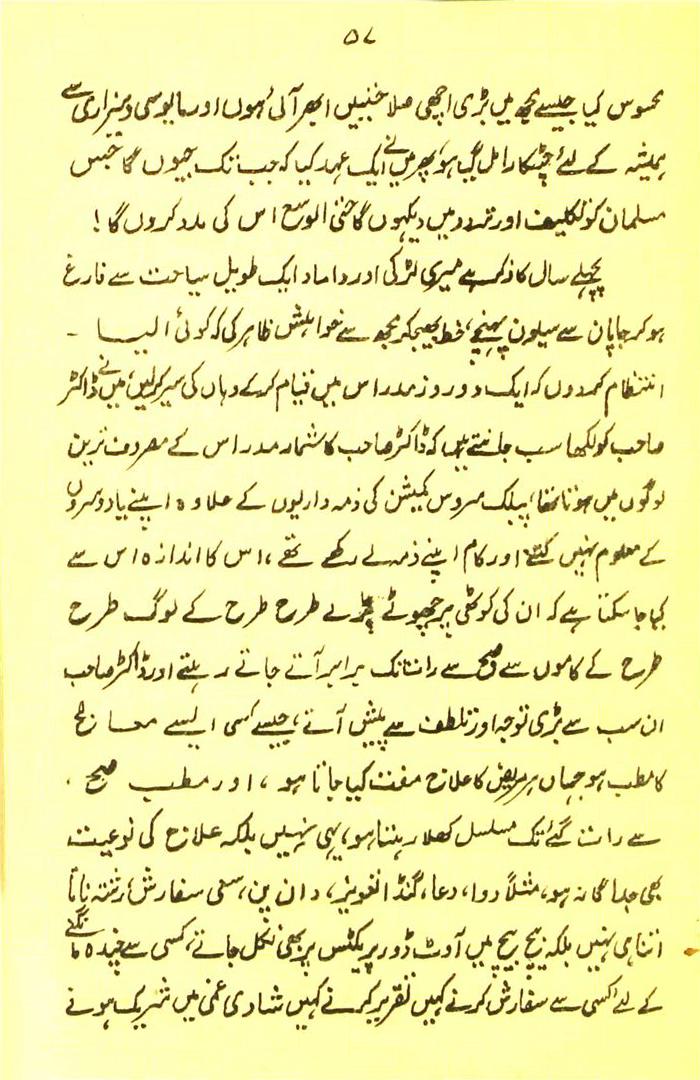 ۵۷
محسوس کیا جیسے مجھ میں بڑی اچھی صلاحیتیں ابھر آئی ہوں اور مایوسی و بیزاری سے
ہمیشہ کے لئے چھٹکارا مل گیا ہو، پھر میں نے ایک عہد کیا کہ جب تک جیوں گا جس
مسلمان کو تکلیف اور تردد میں دیکھوں گا حتی الوسع اس کی مدد کروں گا!
پچھلے سال کا ذکر ہے میری لڑکی اور داماد ایک طویل سیاحت سے فارغ
ہو کر جاپان سے سیلون پہنچے، خط بھیجکر مجھ سے خواہش ظاہر کی کہ کوئی ایسا ۔
انتظام کردوں کہ ایک دو روز مدراس میں قیام کرکے وہاں کی سیر کرلیں، میں نے ڈاکٹر
صاحب کو لکھا سب جانتے ہیں کہ ڈاکٹر صاحب کا شمار مدراس کے مصروف ترین
لوگوں میں ہوتا تھا، پبلک سروس کمیشن کی ذمہ داریوں کے علاوہ اپنے یا دوسروں
کے معلوم نہیں کتنے اور کام اپنے ذمہ لے رکھے تھے، اس کا اندازہ اس سے
کیا جا سکتا ہے کہ ان کی کوٹھی پر چھوٹے بڑے طرح طرح کے لوگ طرح
طرح کے کاموں سے صبح سے رات تک برابر آتے جاتے رہتے اور ڈاکٹر صاحب
ان سب سے بڑی توجہ اور تلطف سے پیش آتے، جیسے کسی ایسے معالج
کا مطب ہو جہاں ہر مریض کا علاج مفت کیا جاتا ہو، اور مطب صبح
سے رات گئے تک مسلسل کھلا رہتا ہو، یہی نہیں بلکہ علاج کی نوعیت
بھی جداگانہ ہو، مثلاً دوا، دعا، گنڈا تعویز، دان پن، سعی سفارش، رشتہ ناتا
اتنا ہی نہیں بلکہ بیچ بیچ میں آوٹ ڈور پریکٹس پر بھی نکل جاتے، کسی سے چندہ مانگنے
کے لئے، کسی سے سفارش کرنے کہیں تقریر کرنے کہیں شادی غمی میں شریک ہونے